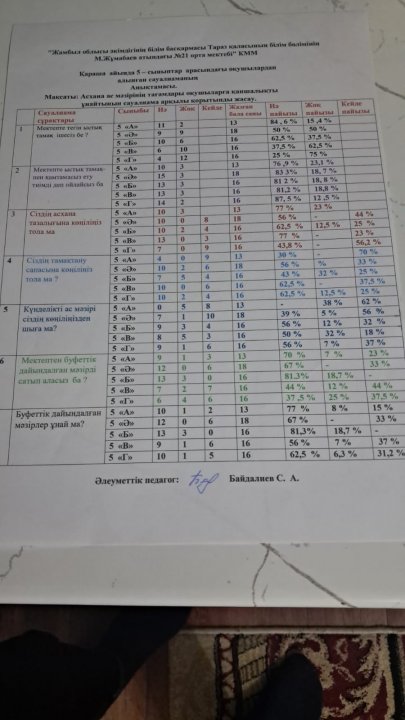 "Жамбыл облысы әкімдігінің білім басқармасы Тараз қаласының білім бөлімінің
М.Жұмабаев атындағы №21 орта мектебі" КММ
Қараша айында 5 – сыныптар арасындағы оқушылардан
алынған сауалнаманың
Анықтамасы.
Мақсаты: Асхана ас мәзірінің тағамдары оқушыларға қаншалықты
ұнайтынын сауалнама арқылы қорытынды жасау.
Сауалнама сұрақтары Сыныбы Иә Жоқ Кейде Жазған бала саны Иә пайызы Жоқ пайызы Кейде пайызы
1 Мектепте тегін ыстық тамақ ішесіз бе ?
5 «А» 11 2 13 84 , 6 % 15 ,4 %
5 «Ә» 9 9 18 50 % 50 %
5 «Б» 10 6 16 62,5 % 37,5 %
5 «В» 6 10 16 37,5 % 62,5 %
5 «Г» 4 12 16 25 % 75 %
2 Мектепте ыстық тамақпен қамтамасыз ету тиімді деп ойлайсыз ба
5 «А» 10 3 13 76 ,9 % 23,1 %
5 «Ә» 15 3 18 83 3% 18,7 %
5 «Б» 13 3 16 81 2 % 18, 8 %
5 «В» 13 3 16 81,2 % 18,8 %
5 «Г» 14 2 16 87, 5 % 12 ,5 %
3 Сіздің асхана тазалығына көңіліңіз тола ма
5 «А» 10 3 13 77 % 23 %
5 «Ә» 10 0 8 18 56 % - 44 %
5 «Б» 10 2 4 16 62,5 % 12,5 % 25 %
5 «В» 13 0 3 16 77 % - 23 %
5 «Г» 7 0 9 16 43,8 % - 56,2 %
4 Сіздің тамақтану сапасына көңіліңіз тола ма ?
5 «А» 4 0 9 13 30 % - 70 %
5 «Ә» 10 2 6 18 56 % % 33 %
5 «Б» 7 5 4 16 43 % 32 % 25 %
5 «В» 10 0 6 16 62,5 % - 37,5 %
5 «Г» 10 2 4 16 62,5 % 12,5 % 25 %
5 Күнделікті ас мәзірі сіздің көңіліңізден шыға ма?
5 «А» 0 5 8 13 - 38 % 62 %
5 «Ә» 7 1 10 18 39 % 5 % 56 %
5 «Б» 9 3 4 16 56 % 12 % 32 %
5 «В» 8 5 3 16 50 % 32 % 18 %
5 «Г» 9 1 6 16 56 % 7 % 37 %
6 Мектептен буфеттік дайындалған мәзірді сатып аласыз ба ?
5 «А» 9 1 3 13 70 % 7 % 23 %
5 «Ә» 12 0 6 18 67 % - 33 %
5 «Б» 13 3 0 16 81.3% 18,7 % -
5 «В» 7 2 7 16 44 % 12 % 44 %
5 «Г» 6 4 6 16 37 ,5 % 25 % 37,5 %
Буфеттік дайындалған мәзірлер ұнай ма?
5 «А» 10 1 2 13 77 % 8 % 15 %
5 «Ә» 12 0 6 18 67 % - 33 %
5 «Б» 13 3 0 16 81,3% 18,7 % -
5 «В» 9 1 6 16 56 % 7 % 37 %
5 «Г» 10 1 5 16 62,5 % 6,3 % 31,2 %
Әлеуметтік педагог: Байдалиев С. А.